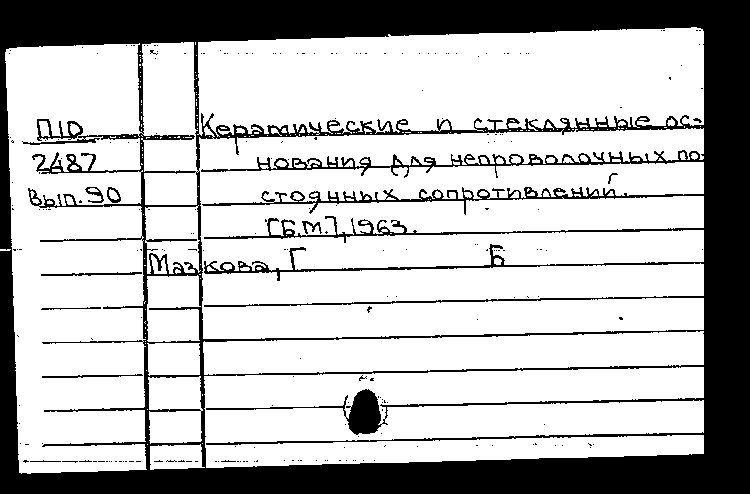 П10 Керамические и стеклянные ос-
2487 нования для непроволочных по-
Вып.90 стоянных сопротивлений.
[Б.М.], 1963.
Мазкова, Г Б